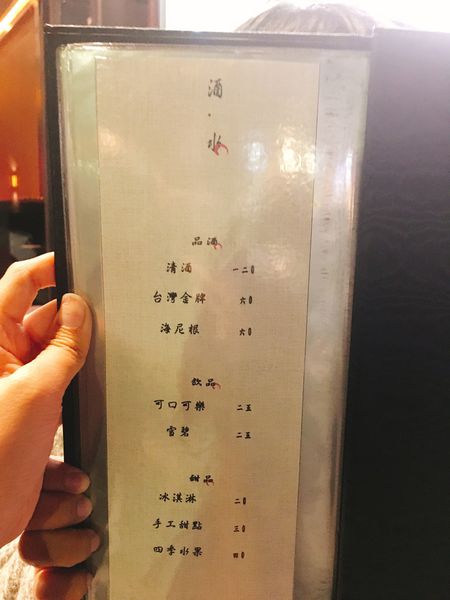 酒·水
品酒
清酒 一二0
台灣金牌 六0
海尼根 六0
飲品
可口可樂 二五
雪碧 二五
甜品
冰淇淋 二0
手工甜點 三0
四季水果 四0